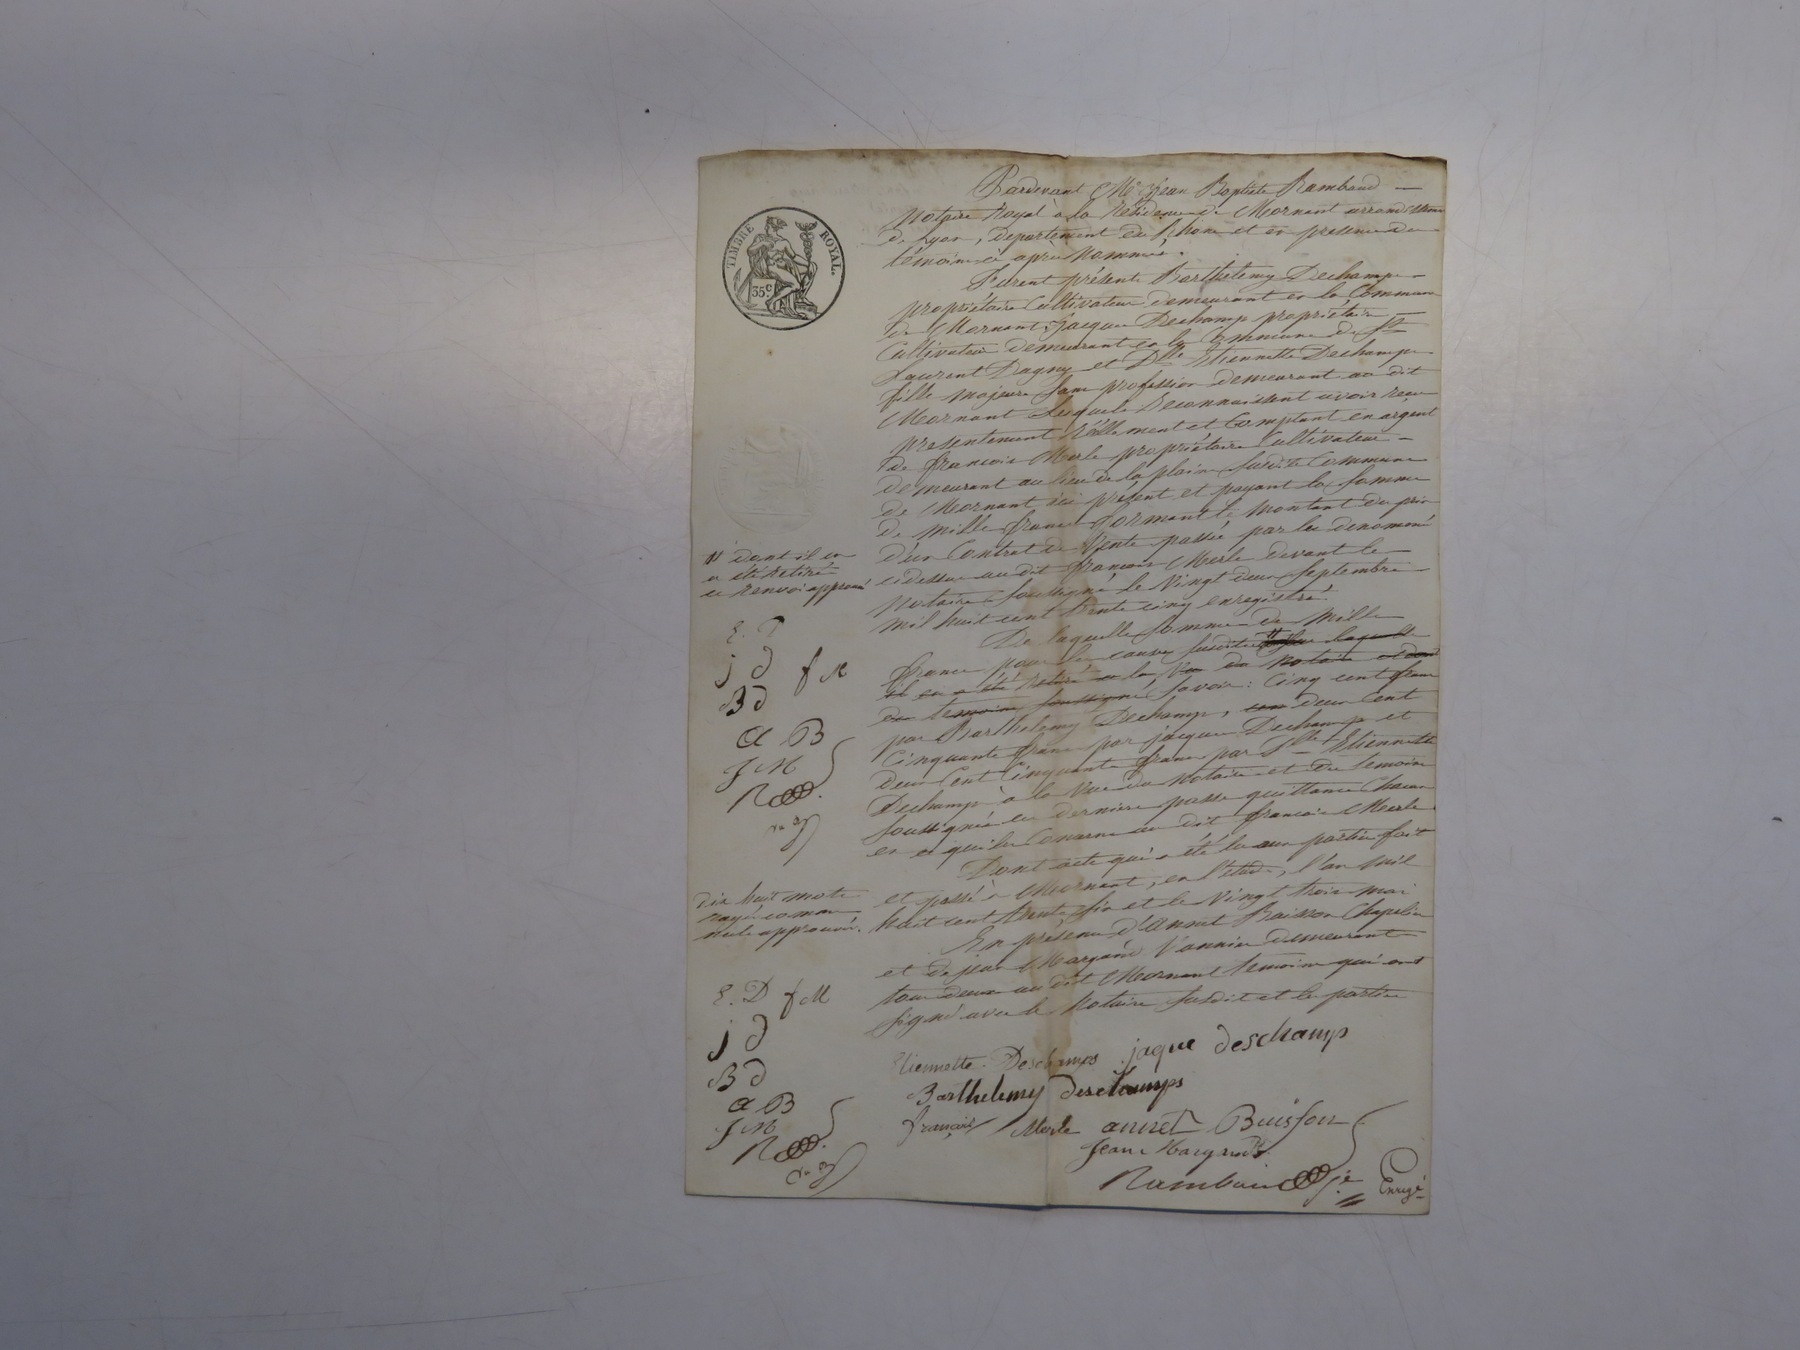 Pardevant Me Jean Baptiste Rambaud —
Notaire Royal à la Résidence de Mornant arrondissem
de Lyon, département du Rhone et en presence des
témoins ci après nommés.
TIMBRE ROYAL.
35c
Furent présents Barthelemy Dechamps —
propriétaire Cultivateur demeurant en la Commune
de Mornant, Jacques Dechamp propriétaire
Cultivateur demeurant en la Commune de St
Laurent Dagny et Dlle Etiennette Dechamps
fille majeure sans profession demeurant au dit
Mornant Lesquels Reconnaissent avoir reçu
presentement réellement et Comptant en argent
de francois Merle propriétaire Cultivateur —
demeurant au lieu de la plaine susdite Commune
de Mornant ici présent et payant la somme
de mille francs formant le montant du prix
d'un Contrat de Vente passée par les dénommés
cidessus au dit francois Merle devant le
notaire soussigné le Vingt deux septembre
mil huit cent trente cinq enregistré.
# dont il en
a été retiré
ce renvoi approuvé
E. D
j d f M
B d
a B
J M
R
De laquelle somme de mille
francs pour les causes susdites # laquelle
il en a été retiré a la Vue du Notaire et
des temoins soussignés savoir : Cinq cent francs
par Barthelemy Dechamps, deux Cent
Cinquante francs par jacques Dechamp et
deux Cent Cinquante francs par Dlle Etiennette
Dechamp à la Vue du Notaire et des temoins
soussignés ces derniers passe quittance Chacun
en ce qui les Concerne au dit francois Merle
Dont acte qui a été lu aux parties fait
et passé à Mornant, en l'étude, l'an mil
huit cent trente six et le Vingt trois mai
En présence d'annet Buisson Chapelier
et de jean Margand Vannier demeurant
tous deux au dit Mornant temoins qui ont
signé avec le Notaire susdit et les parties
Dix huit mots
rayés comme
nuls approuvés.
E. D f M
j d
B d
a B
J M
R
Etiennette Deschamps jaque deschamp
Barthelemy deschamps
françois Merle annet Buisson
Jean Margand
Rambaud
Enregé